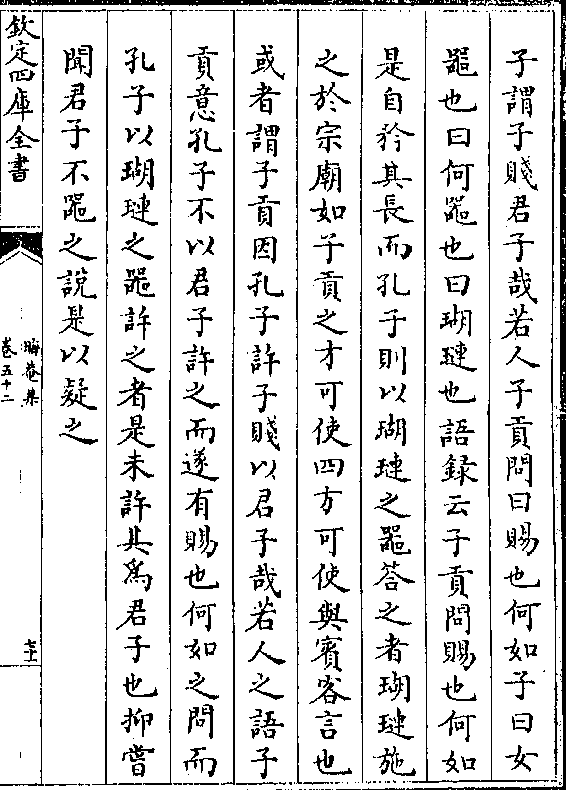 子謂子賤君子哉若人子貢問曰賜也何如子曰女
器也曰何器也曰瑚璉也語錄云子貢問賜也何如
是自矜其長而孔子則以瑚璉之器答之者瑚璉施
之於宗廟如子貢之才可使四方可使與賓客言也
或者謂子貢因孔子許子賤以君子哉若人之語子
貢意孔子不以君子許之而遂有賜也何如之問而
孔子以瑚璉之器許之者是未許其為君子也抑嘗
聞君子不器之說是以疑之
欽定四庫全書
晦菴集
卷五十二